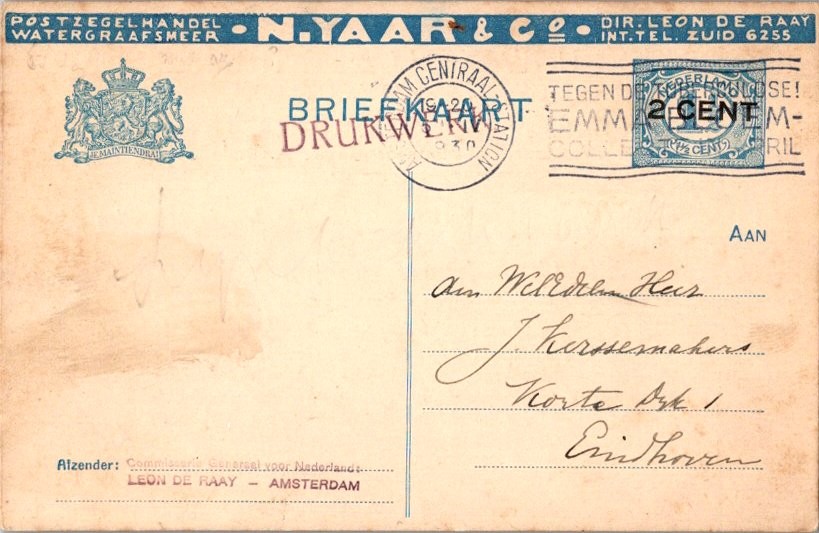 POSTZEGELHANDEL
WATERGRAAFSMEER
· N.YAAR & Co ·
DIR. LEON DE RAAY
INT. TEL. ZUID 6255
JE MAINTIENDRAI
BRIEFKAART
DRUKWERK
AMSTERDAM CENTRAAL STATION
1930
TEGEN DE TUBERCULOSE!
EMMABLOEM-
COLLECTE APRIL
NEDERLAND
2 CENT
AAN
den WelEdelen Heer
J. Kerssemakers
Korte Dyk 1
Eindhoven
Afzender: Commissaris Generaal voor Nederland:
LEON DE RAAY - AMSTERDAM